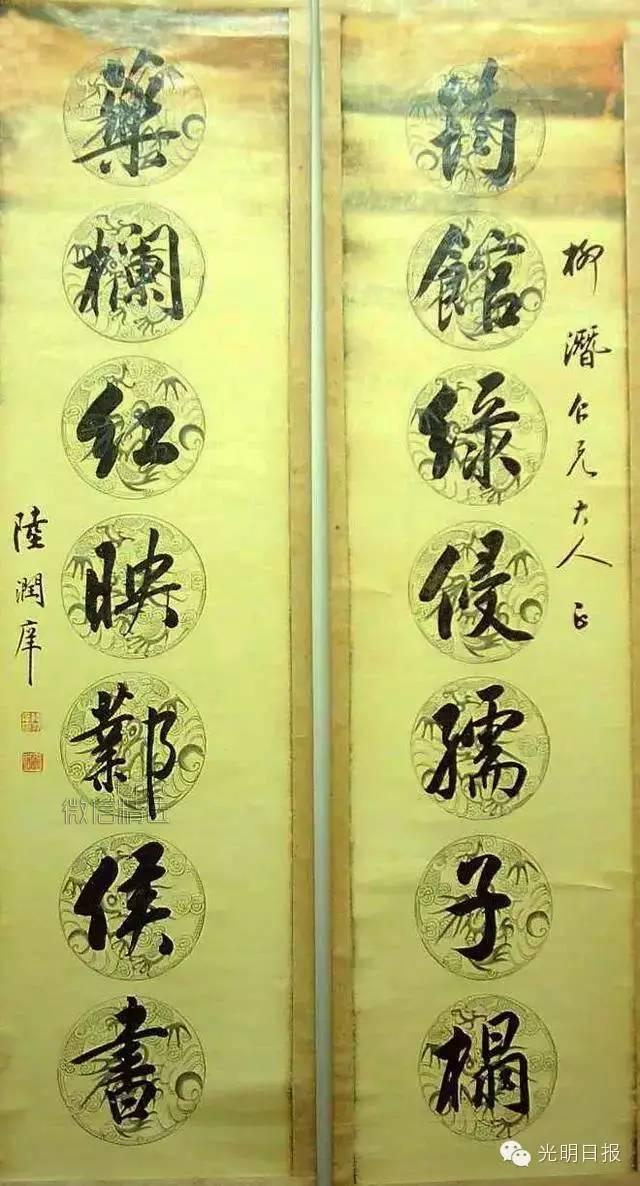 柳潛仁兄大人正
筠館綠侵孺子榻
藥欄紅映鄴侯書
陸潤庠
光明日报